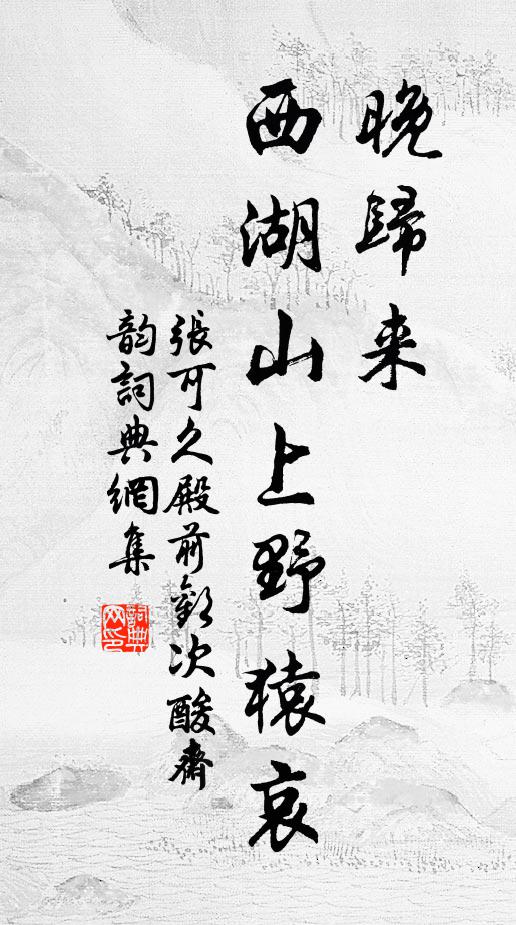 晚歸来
西湖山上野猿哀
張可久殿前歡次酸齋
韵詞典網集
詞典網印